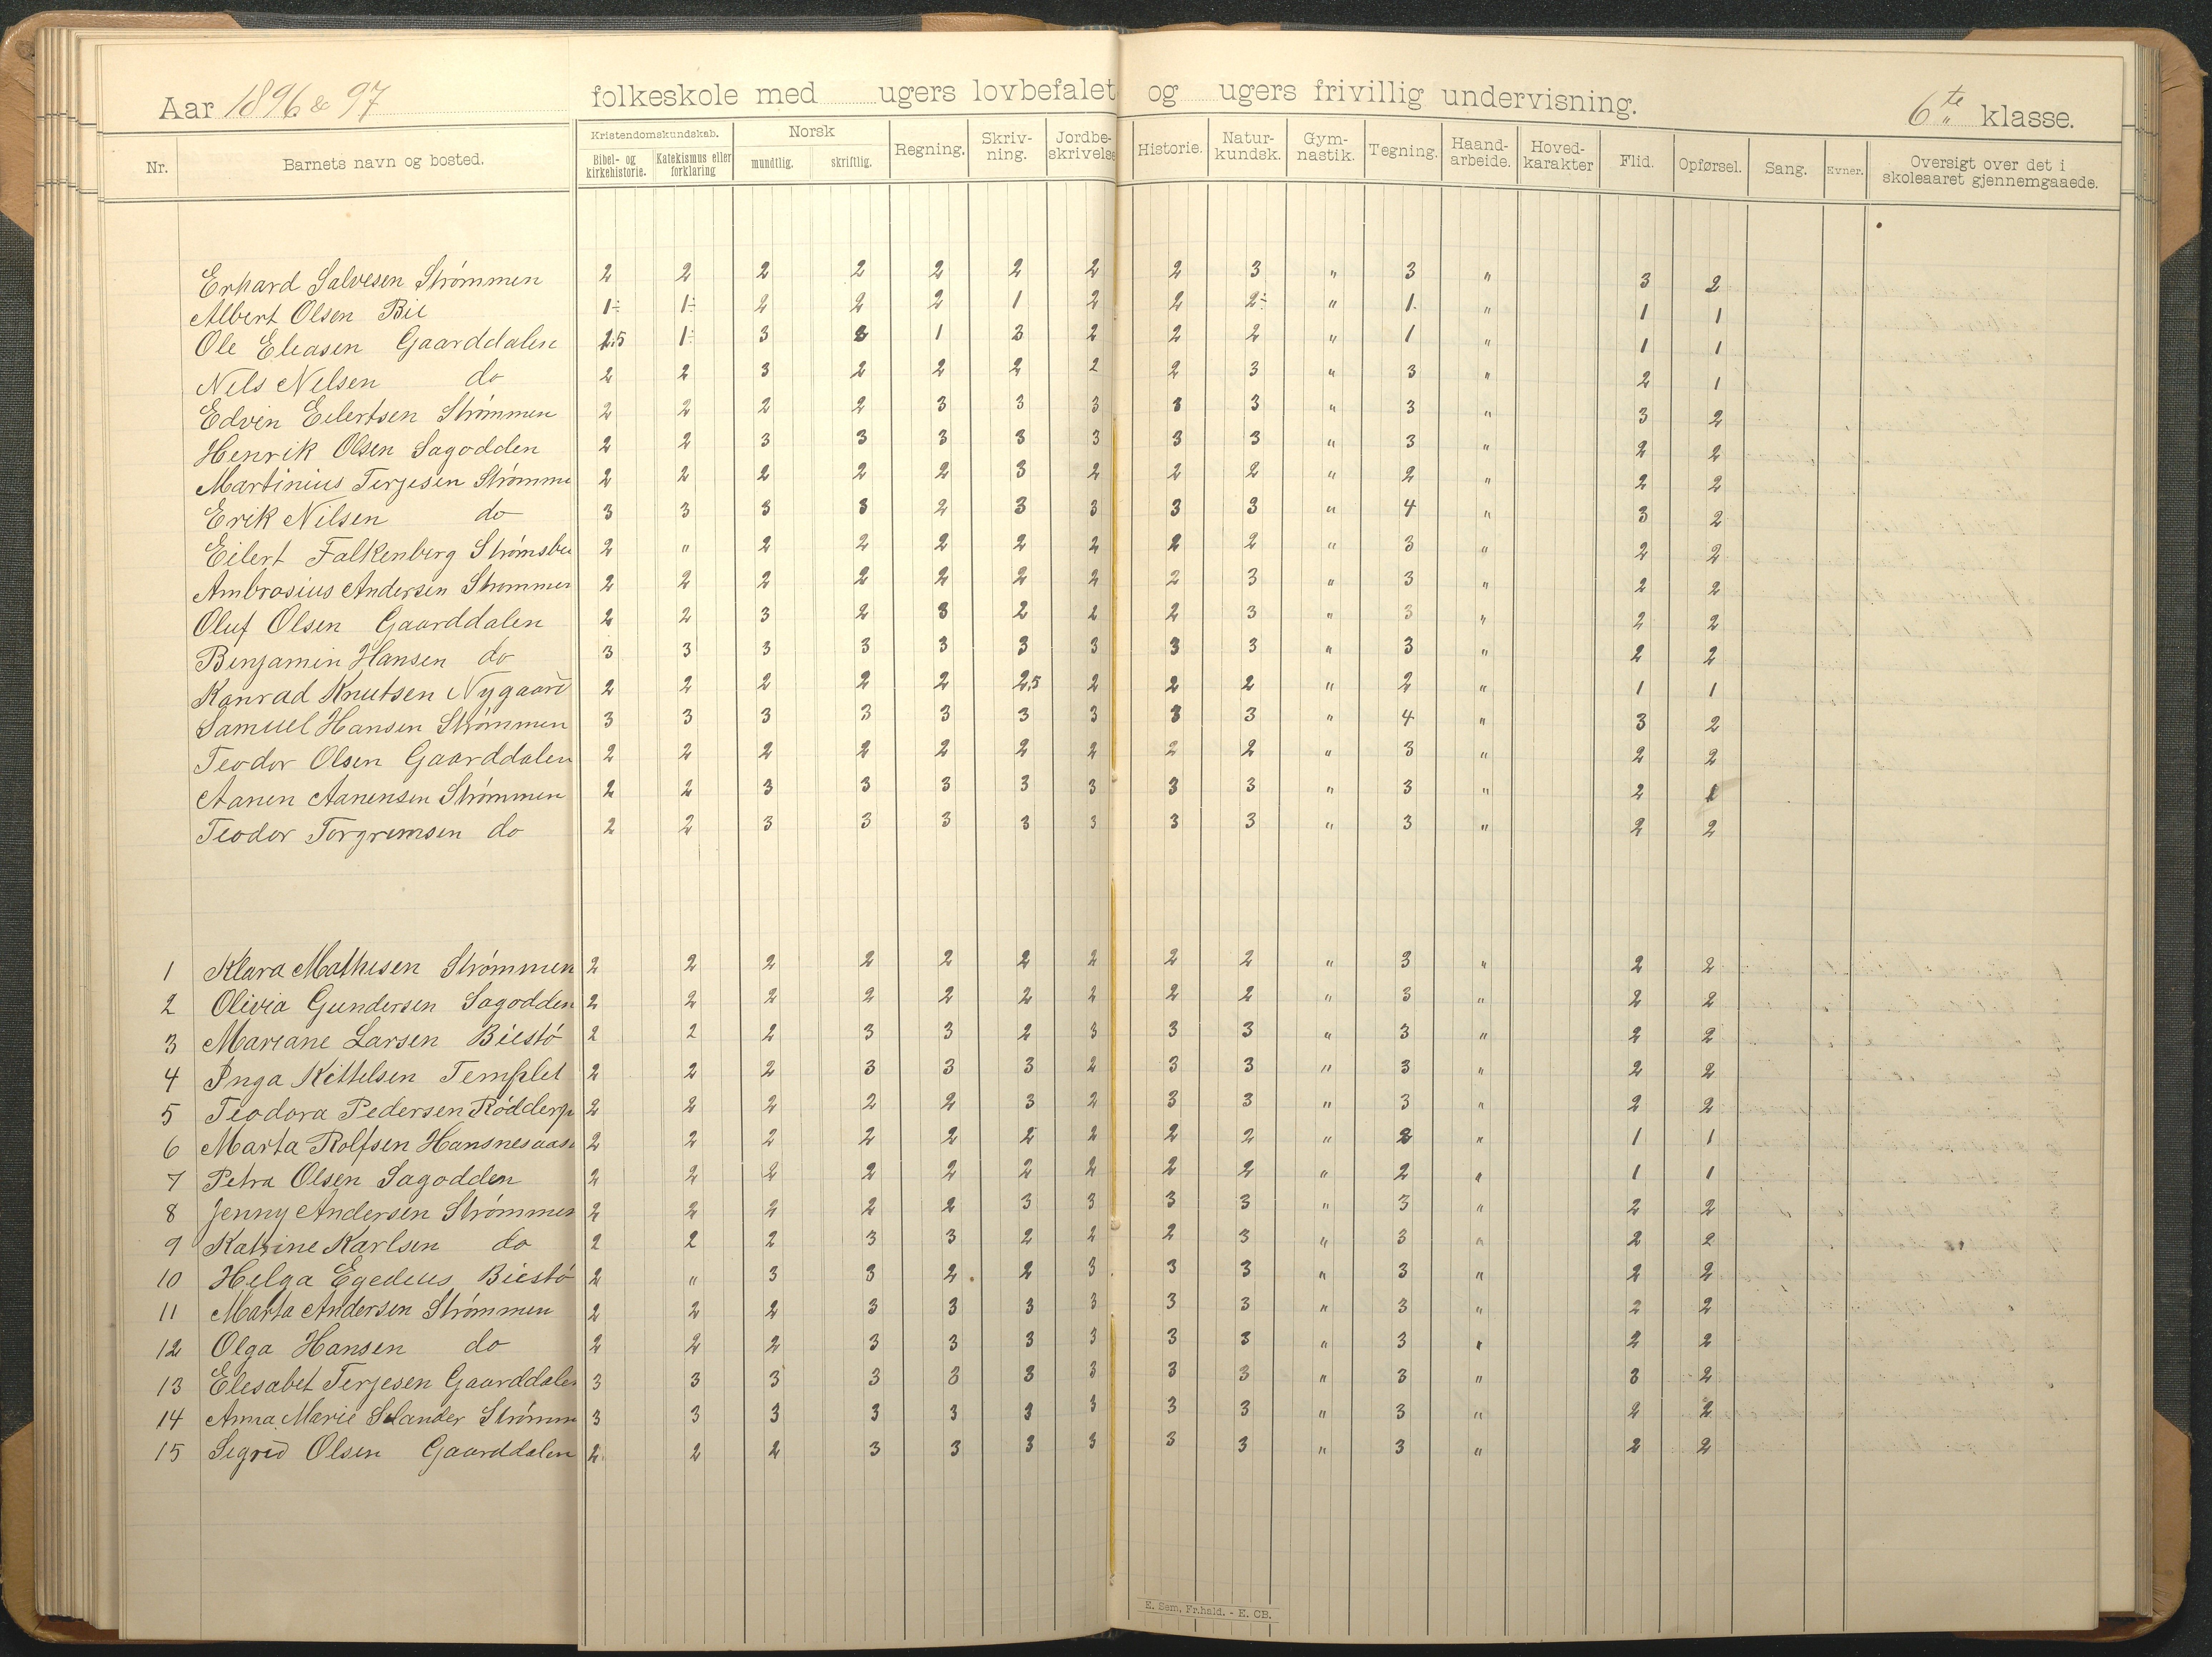 Aar 1896 & 97 folkeskole med ugers lovbefalet og ugers frivillig undervisning. 6te klasse.
Nr. Barnets navn og bosted. Kristendomskundskab. Bibel- og kirkehistorie. Katekismus eller forklaring Norsk mundtlig. skriftlig. Regning. Skriv-ning. Jordbe-skrivelse Historie. Natur-kundsk. Gym-nastik. Tegning. Haand-arbeide. Hoved-karakter Flid. Opførsel. Sang. Evner. Oversigt over det i skoleaaret gjennemgaaede.
Erhard Salvesen Strømmen 2 2 2 2 2 2 2 2 3 " 3 " 3 2
Albert Olsen Bie 1÷ 1÷ 2 2 2 1 2 2 2÷ " 1. " 1 1
Ole Eleasen Gaarddalen 1,5 1÷ 3 3 1 3 2 2 2 " 1 " 1 1
Nils Nilsen do 2 2 3 2 2 2 2 2 3 " 3 " 2 1
Edvin Eilertsen Strømmen 2 2 2 2 3 3 3 3 3 " 3 " 3 2
Henrik Olsen Sagodden 2 2 3 3 3 3 3 3 3 " 3 " 2 2
Martinius Terjesen Strømme 2 2 2 2 2 3 2 2 2 " 2 " 2 2
Erik Nilsen do 3 3 3 3 2 3 3 3 3 " 4 " 3 2
Eilert Falkenberg Strømsbu 2 " 2 2 2 2 2 2 2 " 3 " 2 2
Ambrosius Andersen Strømmen 2 2 2 2 2 2 2 2 3 " 3 " 2 2
Oluf Olsen Gaarddalen 2 2 3 2 3 2 2 2 3 " 3 " 2 2
Benjamin Hansen do 3 3 3 3 3 3 3 3 3 " 3 " 2 2
Konrad Knutsen Nygaard 2 2 2 2 2 2,5 2 2 2 " 2 " 1 1
Samuel Hansen Strømmen 3 3 3 3 3 3 3 3 3 " 4 " 3 2
Teodor Olsen Gaarddalen 2 2 2 2 2 2 2 2 2 " 3 " 2 2
Aanen Aanensen Strømmen 2 2 3 3 3 3 3 3 3 " 3 " 2 1
Teodor Torgrimsen do 2 2 3 3 3 3 3 3 3 " 3 " 2 2
1 Klara Mathisen Strømmen 2 2 2 2 2 2 2 2 2 " 3 " 2 2
2 Olivia Gundersen Sagodden 2 2 2 2 2 2 2 2 2 " 3 " 2 2
3 Mariane Larsen Biestø 2 2 2 3 3 2 3 3 3 " 3 " 2 2
4 Inga Kittelsen Templet 2 2 2 3 3 3 2 3 3 " 3 " 2 2
5 Teodora Pedersen Rødderp 2 2 2 2 2 3 2 3 3 " 3 " 2 2
6 Marta Rolfsen Hansnesaas 2 2 2 2 2 2 2 2 2 " 2 " 1 1
7 Petra Olsen Sagodden 2 2 2 2 2 2 2 2 2 " 2 " 1 1
8 Jenny Andersen Strømmen 2 2 2 2 2 3 3 3 3 " 3 " 2 2
9 Katrine Karlsen do 2 2 2 3 3 2 2 2 3 " 3 " 2 2
10 Helga Egedius Biestø 2 " 3 3 2. 2 3. 3 3 " 3 " 2 2
11 Marta Andersen Strømmen 2 2 2 3 3 3 3 3 3 " 3 " 2 2
12 Olga Hansen do 2 2 2 3 3 3 3 3 3 " 3 " 2 2
13 Elesabet Terjesen Gaarddalen 3 3 3 3 3 3 3 3 3 " 3 " 3 2
14 Anna Marie Selander Strømm 3 3 3 3 3 3 3 3 3 " 3 " 2 2
15 Sigrid Olsen Gaarddalen 2. 2 2 3 3 3 3 3 3 " 3 " 2 2
E. Sem, Fr.hald. - E. CB.